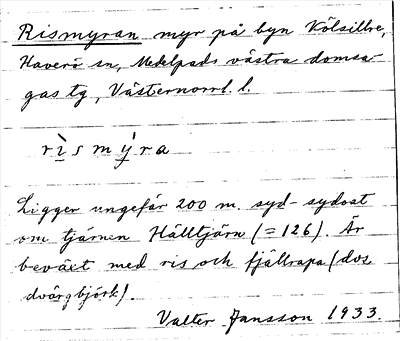 Rismyran myr på byn Kölsillre,
Haverö sn, Medelpads västra domsa-
gas tg, Västernorrl. l.
rìsmy̆́ra
Ligger ungefär 200 m. syd-sydost
om tjärnen Hälltjärn (=126). Är
beväxt med ris och fjällrapa (dvs
dvärgbjörk).
Valter Jansson 1933.